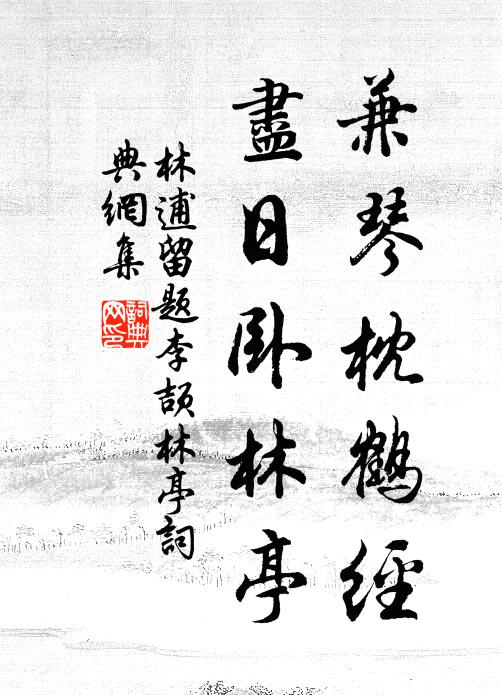 兼琴枕鶴經
盡日臥林亭
林逋留題李頡林亭詞
典網集
詞典网印